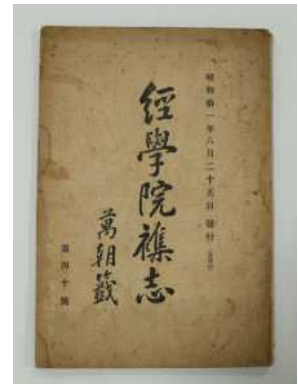 昭和拾一年八月二十五日 發行
經學院雜志
萬朝籤
第四十號